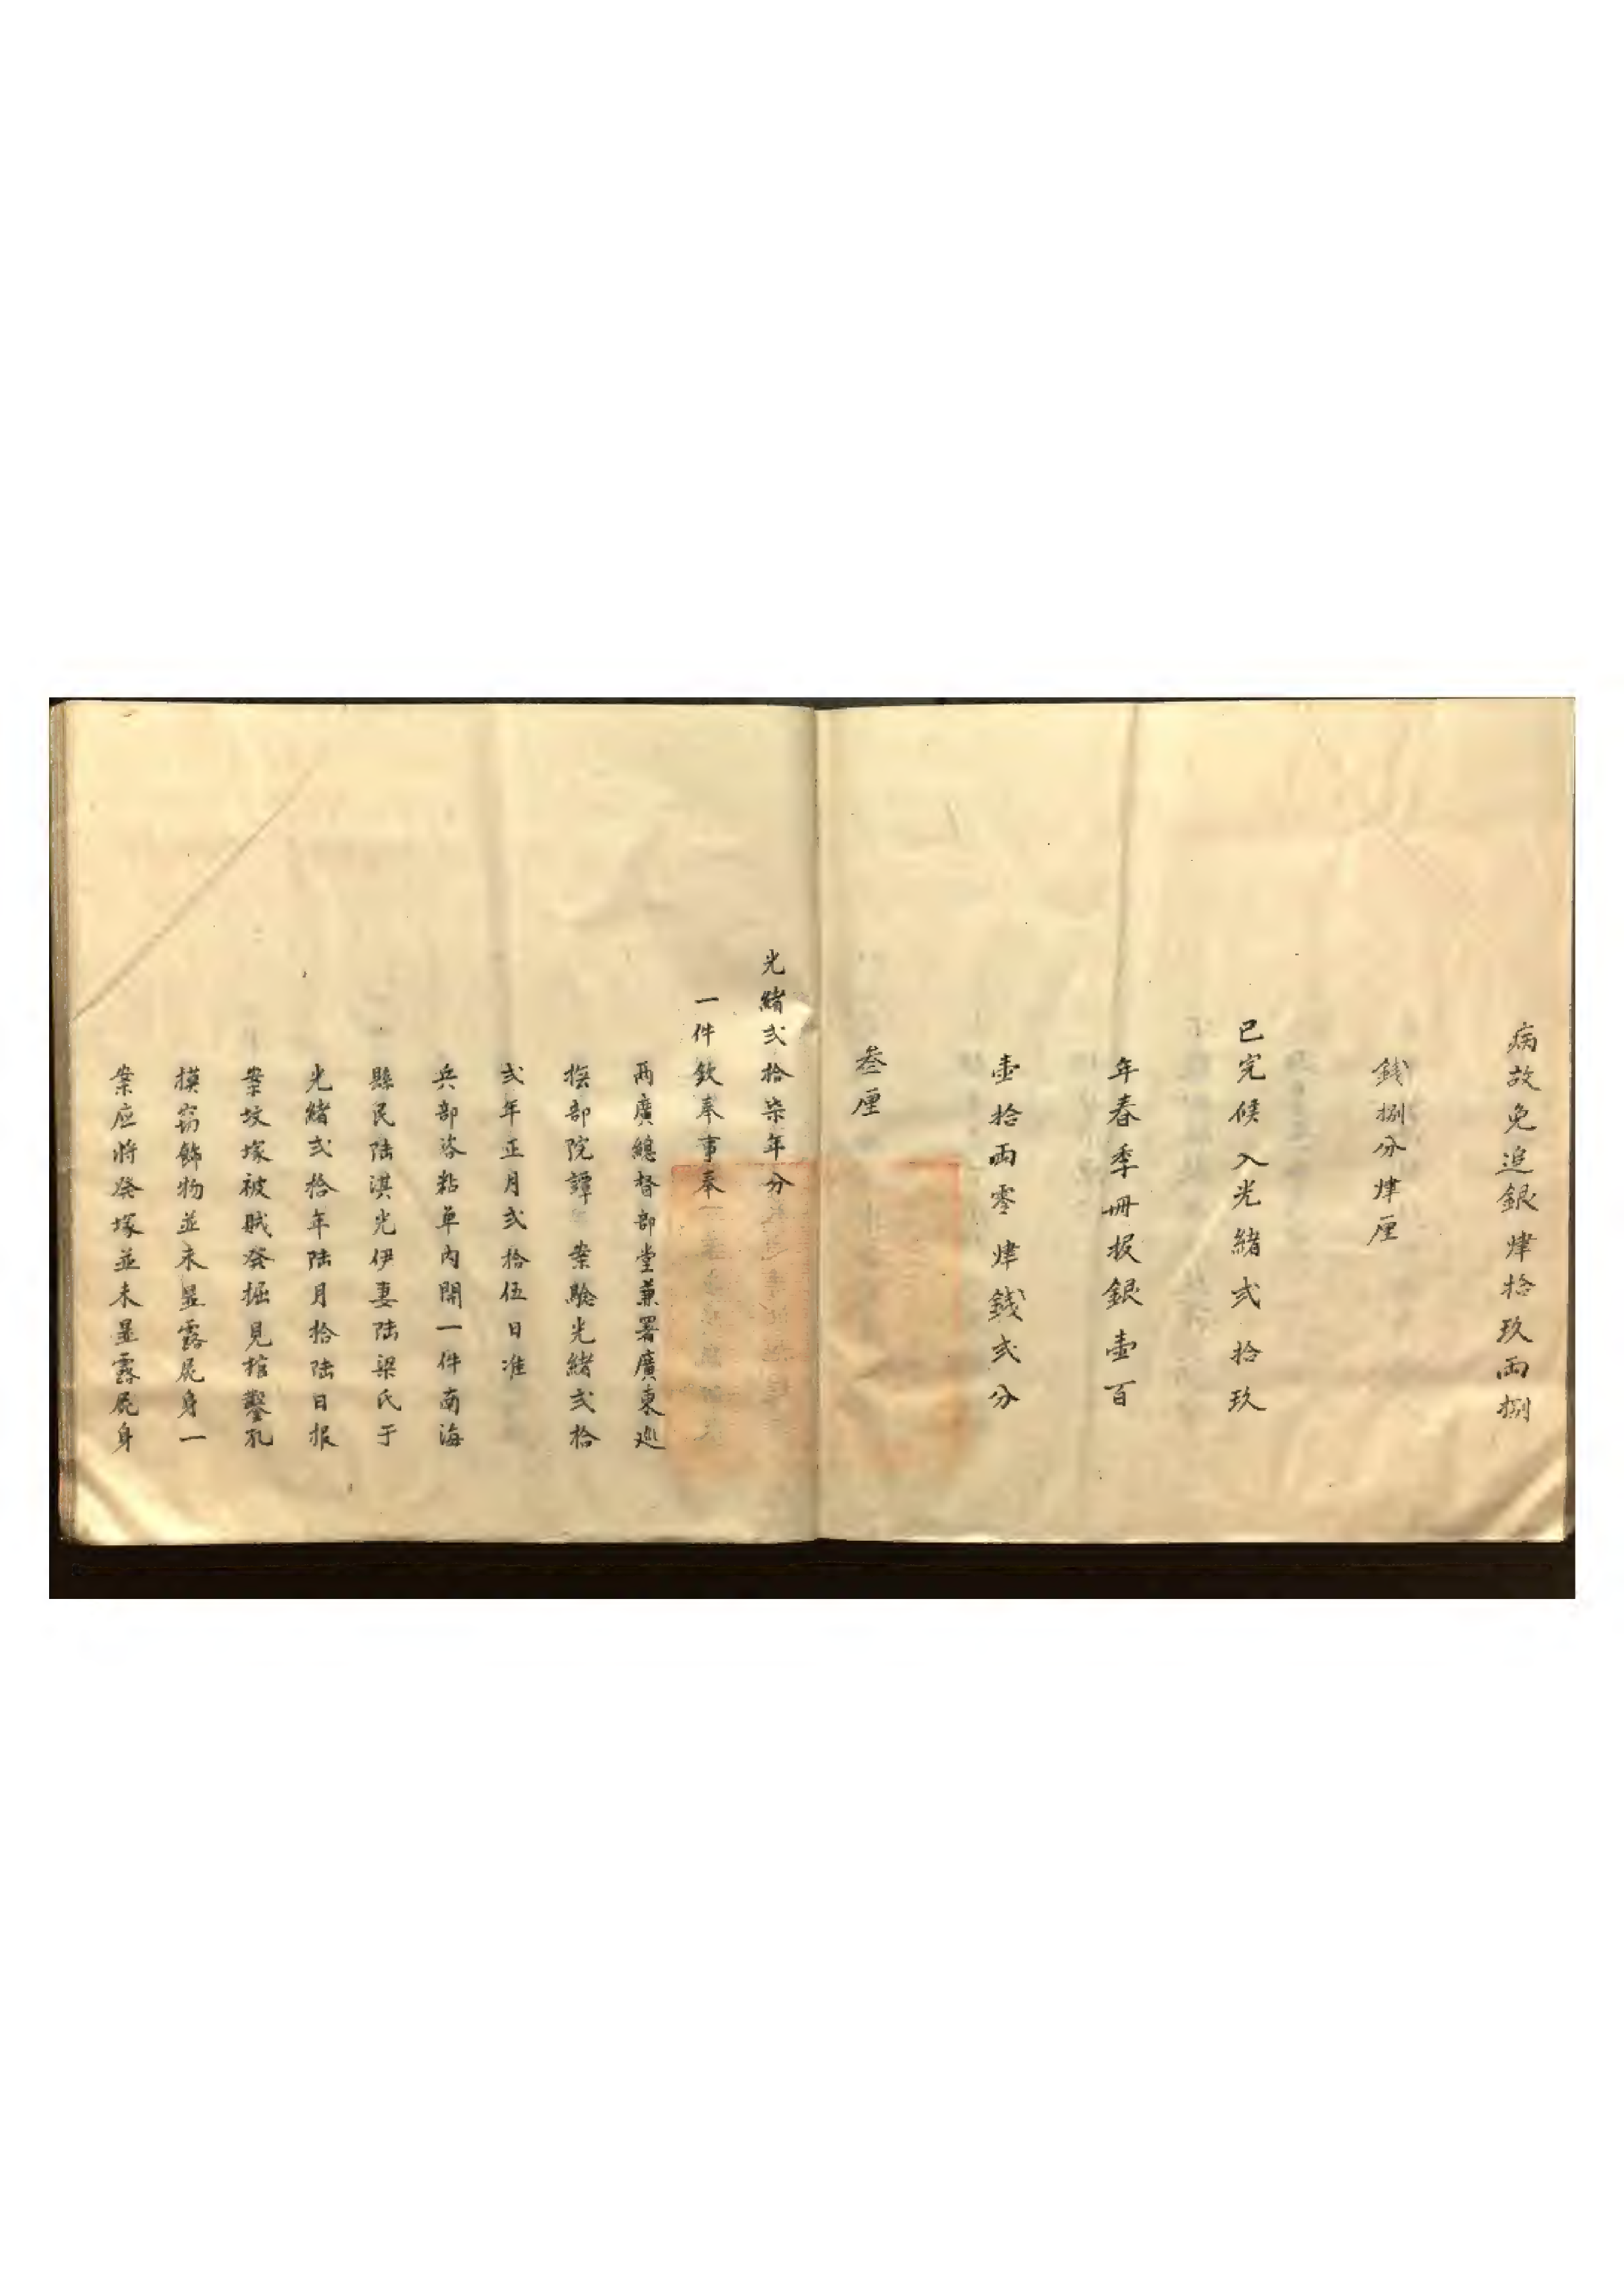 病故免追銀肆拾玖兩捌
錢捌分肆厘
已完候入光緒弍拾玖
年春季冊报銀壹百
壹拾兩零肆錢弍分
叁厘
光緒弍拾柒年分
一件欽奉事奉
兩廣總督部堂兼署廣東巡
撫部院譚案驗光緒弍拾
弍年正月弍拾伍日准
兵部咨粘单內開一件南海
縣民陆淇光伊妻陆梁氏于
光緒弍拾年陆月拾陆日报
案坟塚被賊發掘見棺鑿孔
摸窃飾物並未显露屍身一
案应將發塚並未显露屍身